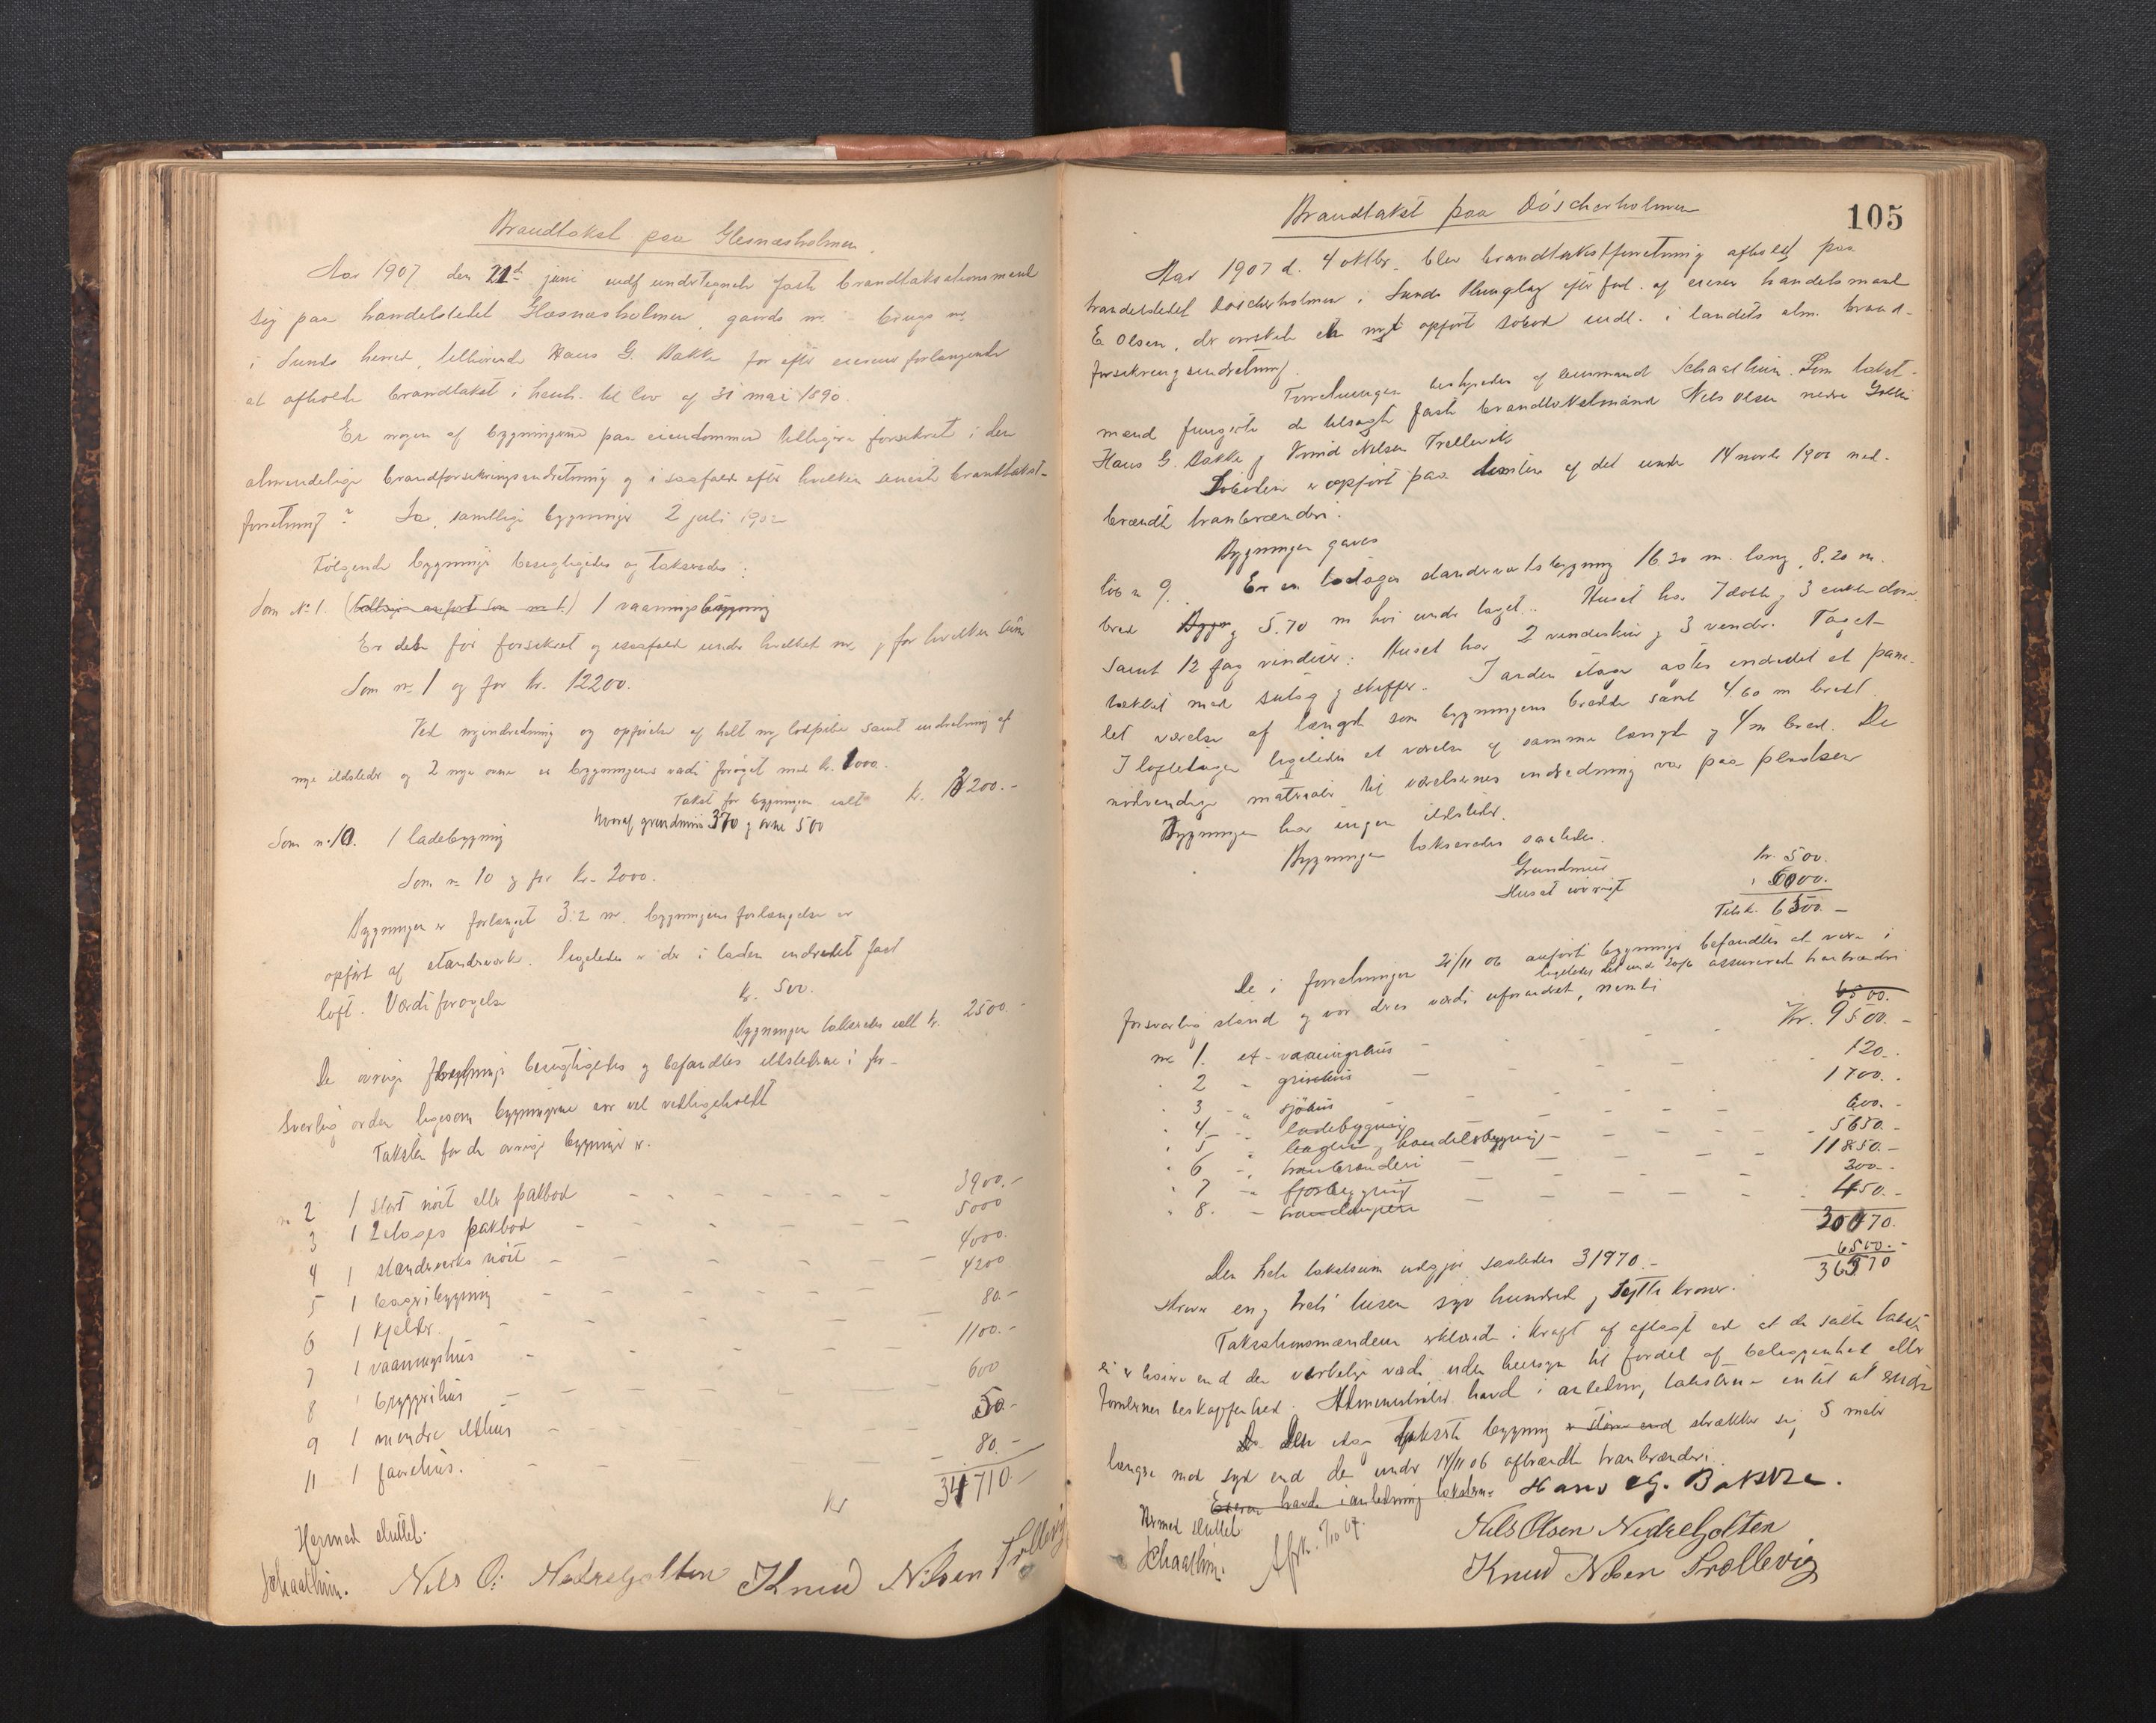 Brandtakst paa Glesnæsholmen.
Aar 1907 den 21de juni indf undertegnede faste brandtaksationsmænd
sig paa handelstedet Glæsnæsholmen, gaards nr. brugs nr.
i Sunds herred, tilhørende Hans G. Bakke for efter eierens forlangende
at afholde brandtakst i henh. til lov af 31 mai 1890.
Er nogen af bygningerne paa eiendommen tilligere forsikret i den
almindelige brandforsikringsindretning og i saafald efter hvilken seneste brandtakst-
forretning? Ja, samtlige bygninger 2 juli 1902
Følgende bygninger besigtigedes og takseredes:
Som No 1. 1 vaaningsbygning
Er den før forsikret og isaafald under hvilket nr. og for hvilken sum
Som nr 1 og for kr. 12200.
Ved nyindredning og opførelse af helt ny lodpibe samt indretning af
nye ildsteder og 2 nye ovne er bygningens værdi forøget med kr. 1000.
Takst for bygningen ialt kr. 13200.-
hvoraf grundmur 370 og ovne 500
Som nr. 10. 1 ladebygning
Som nr 10 og for kr. 2000.
Bygningen er forlænget 3.2 m. bygningens forlængelse er
opført af standværk. Ligeledes er der i laden indredet fast
loft. Værdiforøgelse kr. 500.
Bygningen takseredes ialt kr. 2500.-
De øvrige bygninger besigtigedes og befandtes ildstederne i for-
svarlig orden ligesom bygningerne var vel vedligeholdt
Taksten for de øvrige bygninger er.
nr 2 1 stort nøst eller pakbod - - - 3900.-
3 1 2 etages pakbod - - - 5000
4 1 standværks nøst - - - 4000.
5 1 bageribygning - - - 4200
6 1 kjelder. - - - 80.-
7 1 vaaningshus - - - 1100.-
8 1 bryggerhus - - - 600
9 1 mindre ildhus - - - 50.-
11 1 faarehus. - - - 80.-
Kr 34710.-
Hermed sluttet.
Schaathun. Nils O: Nedregolten Knud Nilsen Trollevig
105
Brandtakst paa Döscherholmen
Aar 1907 d. 4 oktbr. blev brandtakstforretning afholdt paa
handelstedet Döscherholmen i Sunds thinglag efter ford. af eieren handelsmand
E Olsen, der ønskede et nyt opført søbod indt. i landets alm. brand-
forsikringsindretning.
Forretningen bestyredes af lensmand Schaathun. Som takst-
mænd fungerte de tilsagte faste brandtakstmænd Nils Olsen nedre Golten
Hans G. Bakke og Knud Nilsen Trollevik
Søboden er opført paa tomten af det under 14 novbr 1906 ned-
brændte tranbrænderi.
Bygningen gaves
lib nr 9. Er en toetages standerværksbygning 16.20 m. lang, 8.20 m.
bred og 5.70 m høi under taget. Huset har 7 dobb. og 3 enkle døre
samt 12 fag vinduer. Huset har 2 vindeskur og 3 vinder. Taget
tækket med sutag og skiffer. I anden etage agtes indredet et pane-
let værelse af længde som bygningens bredde samt 4.60 m bredt.
I loftetagen ligeledes et værelse af samme længde og 4 m bred. De
nødvendige materialer til værelsernes indredning var paa pladsen
Bygningen har ingen ildsteder.
Bygningen takseredes saaledes.
Grundmur Kr. 500.
Huset iøvrigt " 6000.
Tilsk. 6500.-
De i forretningen 21/11 06 anførte bygninger befandtes at være i
ligeledes det und assurerede tranbrænderi
forsvarlig stand og var deres værdi uforandret, nemlig
6500.
nr 1. et vaaningshus - - - Kr. 9500.-
" 2 " grisehus - - - 120.-
" 3 " sjøhus - - - 1700.-
" 4 " ladebygning - - - 600.-
" 5 " lager og handelsbygning - - - 5650.-
" 6 " tranbrænderi - - - 11850.-
" 7 " fjøsbygning - - - 300.-
" 8. " trandamperi - - - 450.-
30170.
6500.-
36570
Den hele takstsum udgjør saaledes 31970.-
skriver en og treti tusen syv hundred og sytti kroner.
Taksationsmændene erklærede i kraft af aflagt ed at de satte takst
ei er høiere end den virkelige værdi, uden hensyn til fordel af beliggenhed eller
tomternes beskaffenhed. Administrator havde i anledning taksterne intet at erindre
Den idag takserte bygning er større end strækker sig 5 meter
længre mod syd end den under 14/11 06 afbrændte tranbrænderi.
Eieren havde i anledning taksterne Hans G. Bakke.
Hermed sluttet Nils Olsen Nedregolten
Schaathun. Afsk. 7/10 07. Knud Nilsen Trollevig